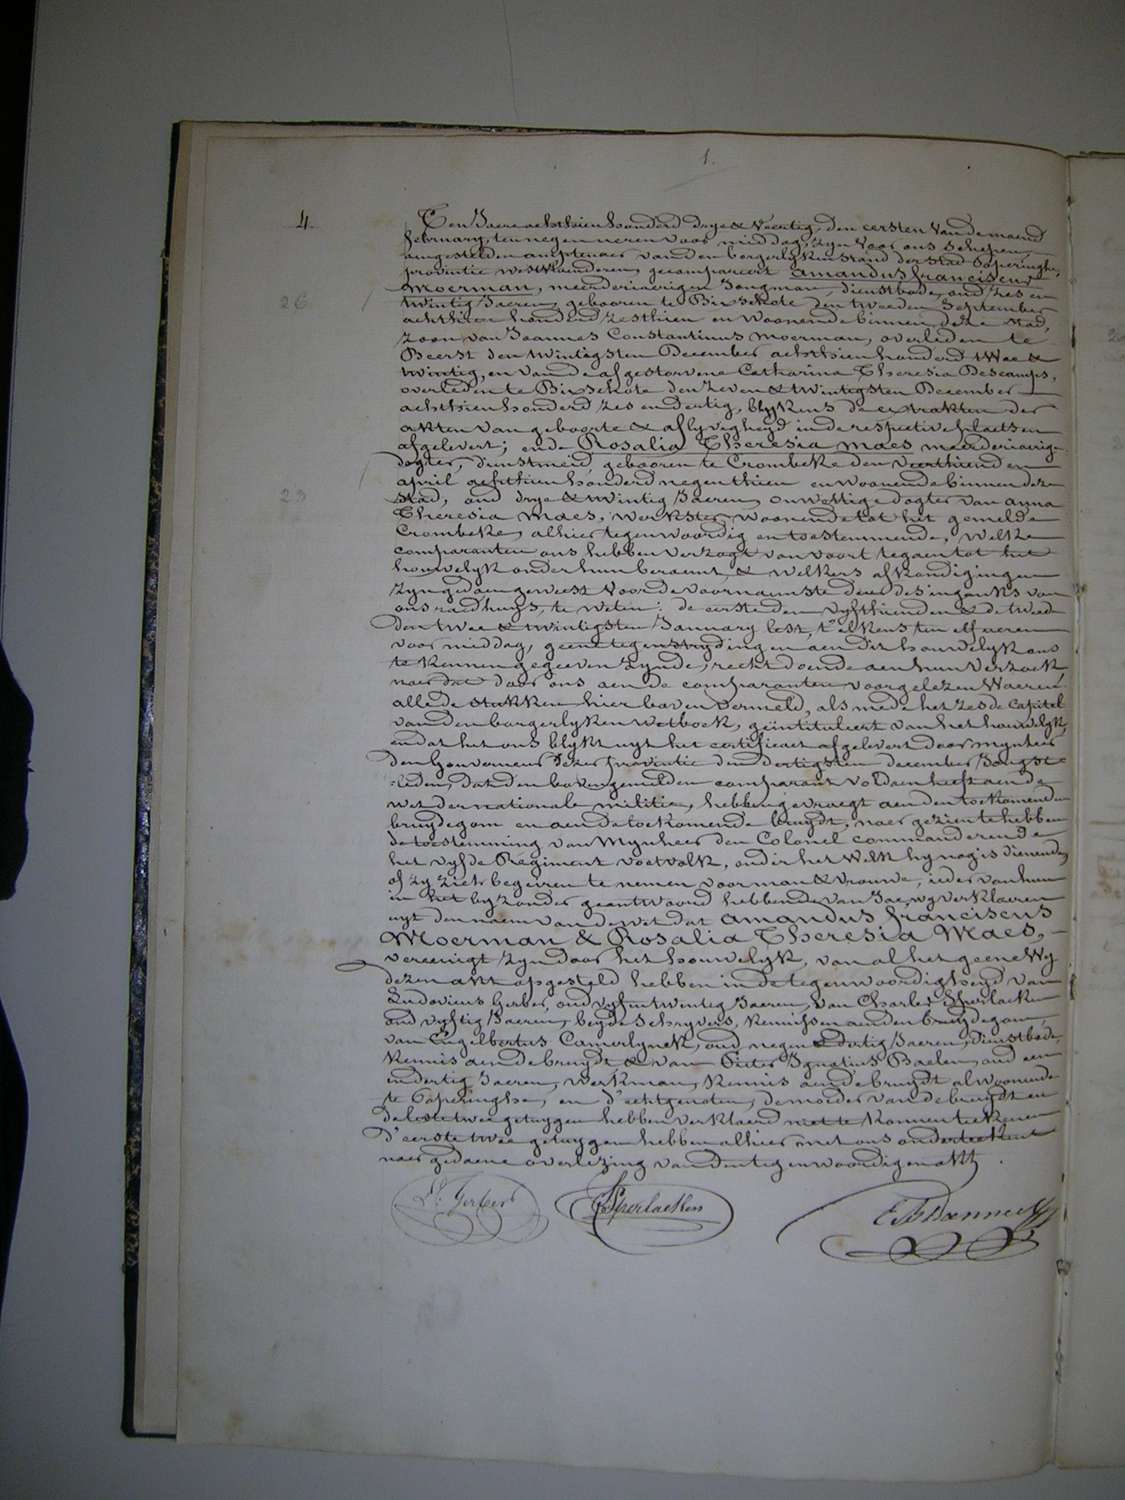 1.
4.
Ten Jaere achthien honderd drye & Veertig, den eersten van de maend
february, ten negen ueren voor middag, zyn voor ons schepen,
aengestelden amptenaer van den borgerlyken stand der stad Poperinghe,
provintie westvlaenderen, gecompareert Amandus franciscus
Moerman, meerderjaerigen Jongman, dienstbode, oud zes en
26
twintig Jaeren, gebooren te Bixschote den tweeden September
achthien honderd zesthien en woonende binnen deze stad,
zoon van Joannes Constantinus Moerman, overleden te
Beerst den twintigsten December achthien honderd twee &
twintig, en van de afgestorvene Catharina Theresia Descamps,
overleden te Bixschote den zeven & twintigsten December
achthien honderd zes en dertig, blykens de extrakten der
akten van geboorte & aflyvigheyd in de respective plaetsen
afgelevert; ende Rosalia Theresia Maes meerderjaerige
dogter, dienstmeid, gebooren te Crombeke den veerthienden
april achthien honderd negenthien en woonende binnen deze
23
stad, oud drye & twintig Jaeren, onwettige dogter van anna
Theresia Maes, werkster, woonende tot het gemelde
Crombeke, alhier tegenwoordig en toestemmende, welke
comparanten ons hebben verzogt van voort te gaen tot het
houwelyk onder hun beraemt, & welkers afkondigingen
zyn gedaen geweest voor de voornaemste deure des ingangks van
ons raedhuys, te weten: de eerste den vyfthienden & de tweede
den twee & twintigsten January lest, t'elkens ten elf ueren
voor middag, geene tegenstryding en aen dit houwelyk ons
te kennen gegeeven zynde, recht doende aen hun verzoek,
naer dat door ons aen de comparanten voorgelezen waeren
alle de stukken hier boven vermeld, als mede het zesde capitel
van den burgerlyken wetboek, geïntituleert van het houwelyk,
en dat het ons blykt uyt het certificaet afgelevert door mynheer
den Gouverneur dezer provintie den dertigsten december Jongst-
leden, dat den bovengemelden comparant voldaen heeft aen de
wet der nationale militie, hebben gevraegt aen den toekomenden
bruydegom en aen de toekomende bruydt, naer gezien te hebben
de toestemming van Mynheer den Colonel commanderende
het vyfde Regiment voetvolk, onder het welk hy nog is dienende,
of zy zich begeiren te nemen voor man & vrouwe, ieder van hun
in het byzonder geantwoord hebbende van Jae, wy verklaeren
uyt den naem van de wet dat Amandus franciscus
Moerman & Rosalia Theresia Maes,
vereenigt zyn door het houwelyk, van al het geene Wy
dezen akt opgesteld hebben in de tegenwoordigheyd van
Ludovicus Gerber, oud vyf en twintig Jaeren, van Charles Sperlaeken
oud vyftig Jaeren, beyde schryvers, kennissen aen den bruydegom,
van Engelbertus Camerlynck, oud negen & dertig Jaeren, dienstbode,
kennis aen de bruydt & van Pieter Ignatius Baelen, oud een
en dertig Jaeren, werkman, kennis aen de bruydt al woonende
te Poperinghe, en d'echtgenoten, de moeder van de bruydt en
de leste twee getuygen hebben verklaerd niet te konnen teekenen
d'eerste twee getuygen hebben alhier met ons onderteekent
naer gedaene overlezing van den tegenwoordigen akt.
L: Gerber Sperlaeken